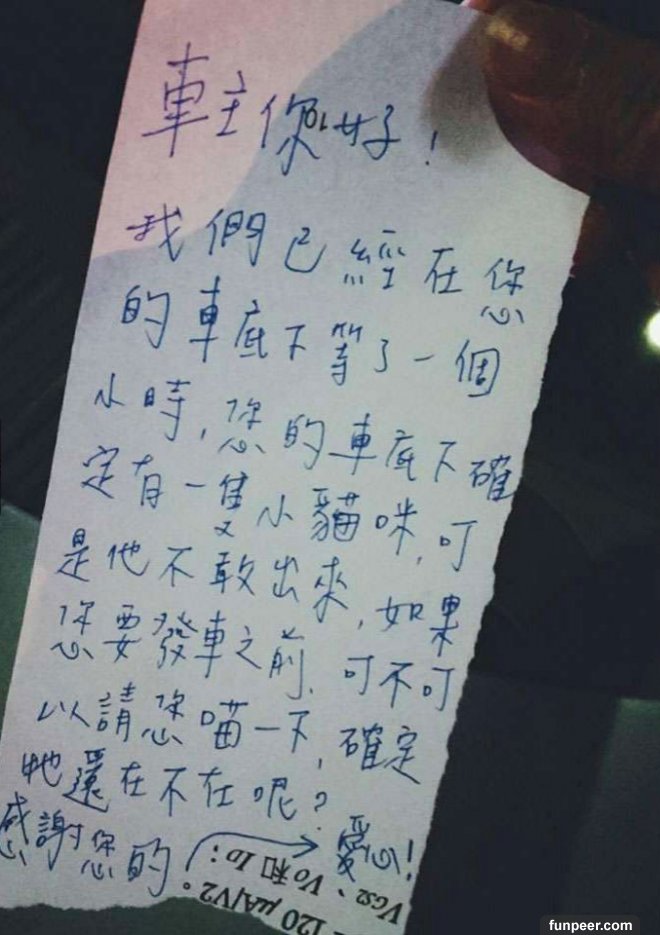 車主你好!
我們已經在您
的車底下等了一個
小時,您的車底下確
定有一隻小貓咪,可
是他不敢出來,如果
您要發車之前,可不可
以請您喵一下,確定
牠還在不在呢?
感謝您的愛心!
V_GS2、V_O和I_D:
= 120 μA/V2。
funpeer.com